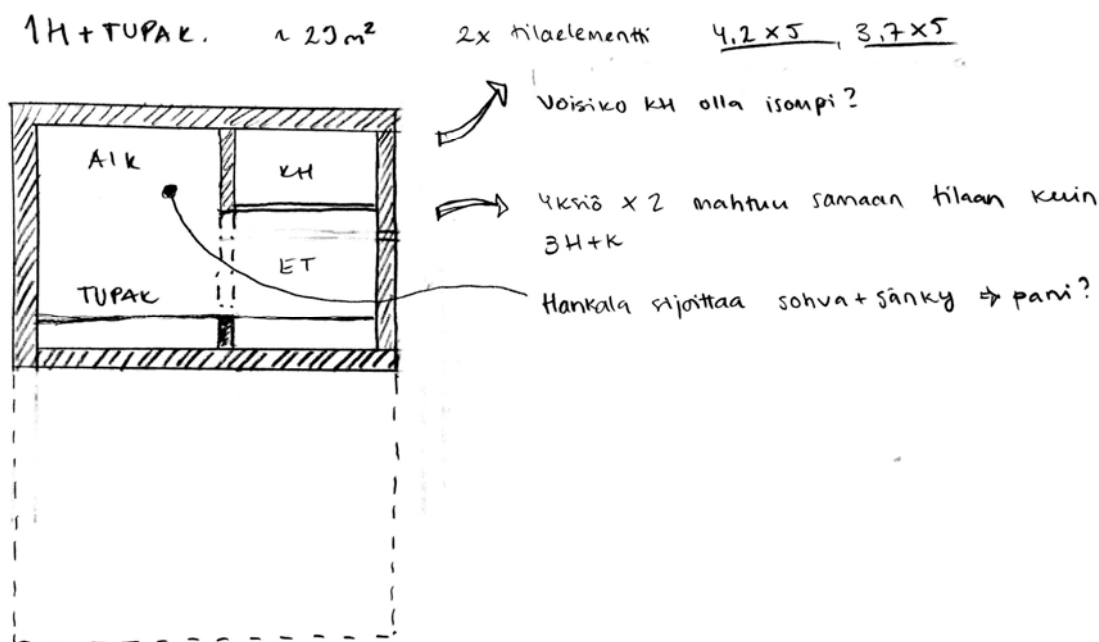 1H + TUPAK. ~ 29 m² 2x tilaelementti 4,2 x 5, 3,7 x 5
Voisiko KH olla isompi?
AIK
KH
Yksiö x 2 mahtuu samaan tilaan kuin
3H+K
ET
TUPAK
Hankala sijoittaa sohva + sänky ⇒ parvi?